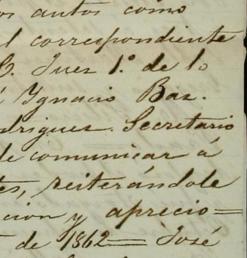 os autos como
l correspondiente
C. Juez 1º. de lo
é Ygnacio Baz.
odrigues. Secretario
de comunicar á
tes, reiterándole
cion y aprecio=
de 1862= José